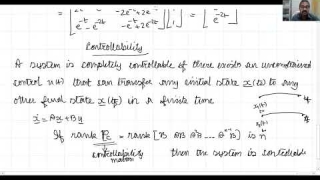 = [ -2e^-t+2e = [
e^-t - e^-2t -e^-t+2e^-2t ] [1] e^-2t ]
Controllability
A system is completely controllable if there exists an unconstrained
control u(t) that can transfer any initial state x(t0) to any
other final state x(tf) in a finite time
x(t0) tf
ẋ = Ax+Bu
x0(t0)
If rank Pc = rank [B AB A²B ... A^n-1 B] is n
controllability then the system is controllable
matrix